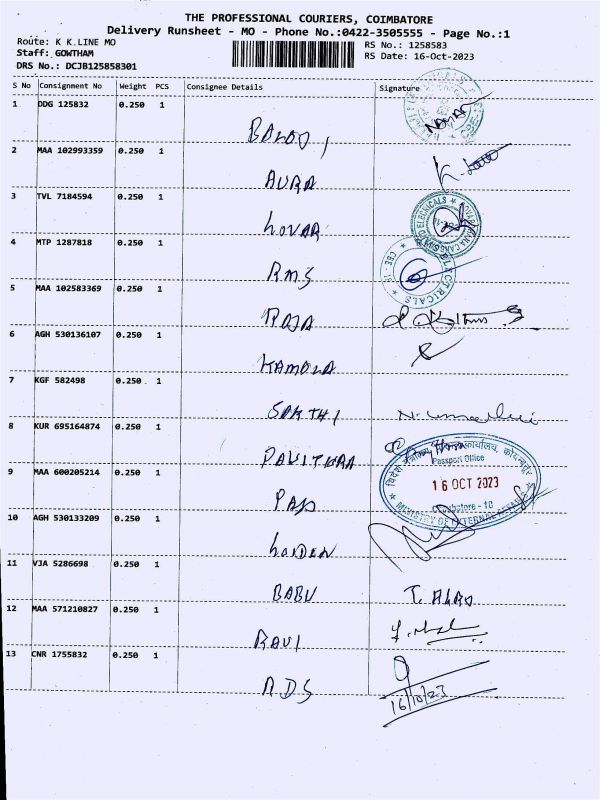 THE PROFESSIONAL COURIERS, COIMBATORE
Delivery Runsheet - MO - Phone No.:0422-3505555 - Page No.:1
Route: K K.LINE MO
Staff: GOWTHAM
DRS No.: DCJB125858301
RS No.: 1258583
RS Date: 16-Oct-2023
S No Consignment No Weight PCS Consignee Details Signature
1 DDG 125832 0.250 1
2 MAA 102993359 0.250 1
AURA
3 TVL 7184594 0.250 1
LOVAR
4 MTP 1287818 0.250 1
RMS
5 MAA 102583369 0.250 1
RAJA
6 AGH 530136107 0.250 1
KAMOLA
7 KGF 582498 0.250 1
SAKTHI
8 KUR 695164874 0.250 1
PAVITHRA
Passport Office
9 MAA 600205214 0.250 1
16 OCT 2023
PAS
Coimbatore - 18
MINISTRY OF EXTERNAL AFFAIRS
10 AGH 530133209 0.250 1
11 VJA 5286698 0.250 1
BABU
12 MAA 571210827 0.250 1
RAVI
13 CNR 1755832 0.250 1
ADS
16/10/23